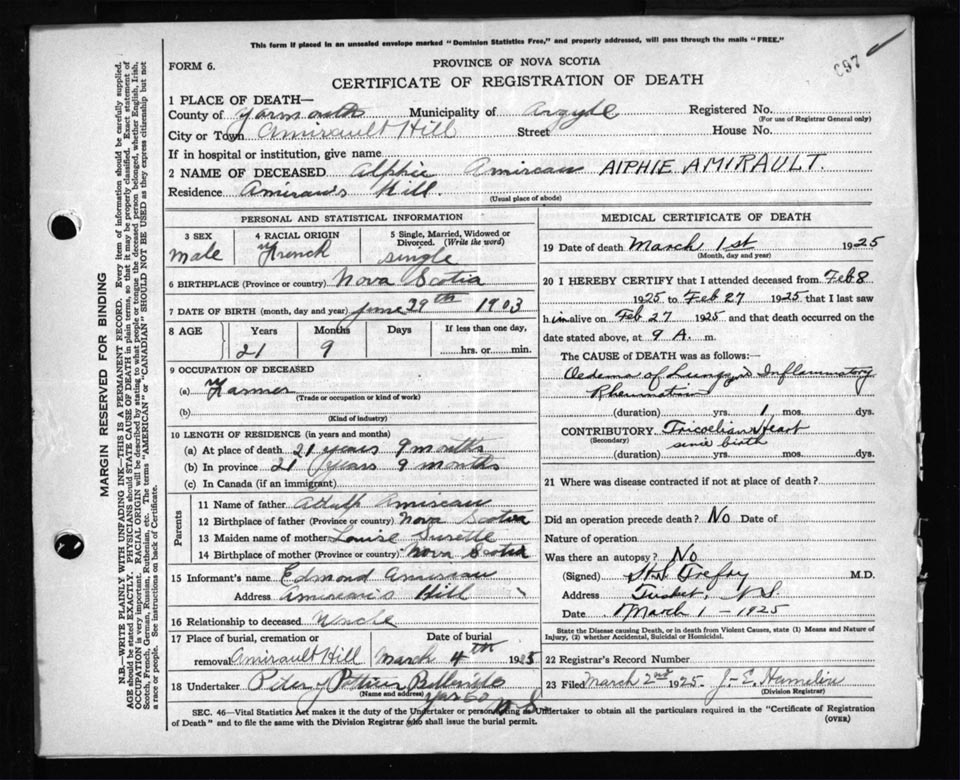 This form if placed in an unsealed envelope marked "Dominion Statistics Free," and properly addressed, will pass through the mails "FREE."
C97
FORM 6.
PROVINCE OF NOVA SCOTIA
CERTIFICATE OF REGISTRATION OF DEATH
1 PLACE OF DEATH—
County of Yarmouth Municipality of Argyle Registered No.
(For use of Registrar General only)
City or Town Amirault Hill Street House No.
If in hospital or institution, give name
2 NAME OF DECEASED Alphie Amireau AlPHIE AMIRAULT.
Residence Amirau's Hill
(Usual place of abode)
PERSONAL AND STATISTICAL INFORMATION
3 SEX 4 RACIAL ORIGIN 5 Single, Married, Widowed or Divorced. (Write the word)
Male French single
6 BIRTHPLACE (Province or country) Nova Scotia
7 DATE OF BIRTH (month, day and year) June 29th 1903
8 AGE Years Months Days If less than one day,
21 9 hrs. or min.
9 OCCUPATION OF DECEASED
(a) Farmer
(Trade or occupation or kind of work)
(b)
(Kind of industry)
10 LENGTH OF RESIDENCE (in years and months)
(a) At place of death 21 years 9 months
(b) In province 21 years 9 months
(c) In Canada (if an immigrant)
Parents
11 Name of father Amireau
12 Birthplace of father (Province or country) Nova Scotia
13 Maiden name of mother Louise Surette
14 Birthplace of mother (Province or country) Nova Scotia
15 Informant's name Edmond Amireau
Address Amireau's Hill
16 Relationship to deceased Uncle
17 Place of burial, cremation or Date of burial
removal Amirault Hill March 4th 1925
18 Undertaker Peter
(Name and address) Yar Co N.S.
MEDICAL CERTIFICATE OF DEATH
19 Date of death March 1st 1925
(Month, day and year)
20 I HEREBY CERTIFY that I attended deceased from Feb 8
1925 to Feb 27 1925 that I last saw
him alive on Feb 27 1925 and that death occurred on the
date stated above, at 9 A. m.
The CAUSE OF DEATH was as follows:—
Oedema of Lungs Inflammatory
Rheumatism
(duration) yrs. 1 mos. dys.
CONTRIBUTORY Heart
(Secondary) birth
(duration) yrs. mos. dys.
21 Where was disease contracted if not at place of death?
Did an operation precede death? No Date of
Nature of operation
Was there an autopsy? No
(Signed) Trefry M.D.
Address Tusket, N.S.
Date March 1 - 1925
State the Disease causing Death, or in death from Violent Causes, state (1) Means and Nature of
Injury, (2) whether Accidental, Suicidal or Homicidal.
22 Registrar's Record Number
23 Filed March 2nd 1925. J. E. Hamilton
(Division Registrar)
SEC. 46—Vital Statistics Act makes it the duty of the Undertaker or person acting as Undertaker to obtain all the particulars required in the "Certificate of Registration
of Death" and to file the same with the Division Registrar who shall issue the burial permit. (OVER)
MARGIN RESERVED FOR BINDING
N.B.—WRITE PLAINLY WITH UNFADING INK—THIS IS A PERMANENT RECORD. Every item of information should be carefully supplied.
AGE should be stated EXACTLY. PHYSICIANS should STATE CAUSE OF DEATH in plain terms, so that it may be properly classified. Exact statement of
OCCUPATION is very important. RACIAL ORIGIN will be described by stating to what people or tongue the deceased person belonged, whether English, Irish,
Scotch, French, German, Russian, Ruthenian, etc. The terms "AMERICAN" or "CANADIAN" SHOULD NOT BE USED as they express citizenship but not
a race or people. See instructions on back of Certificate.